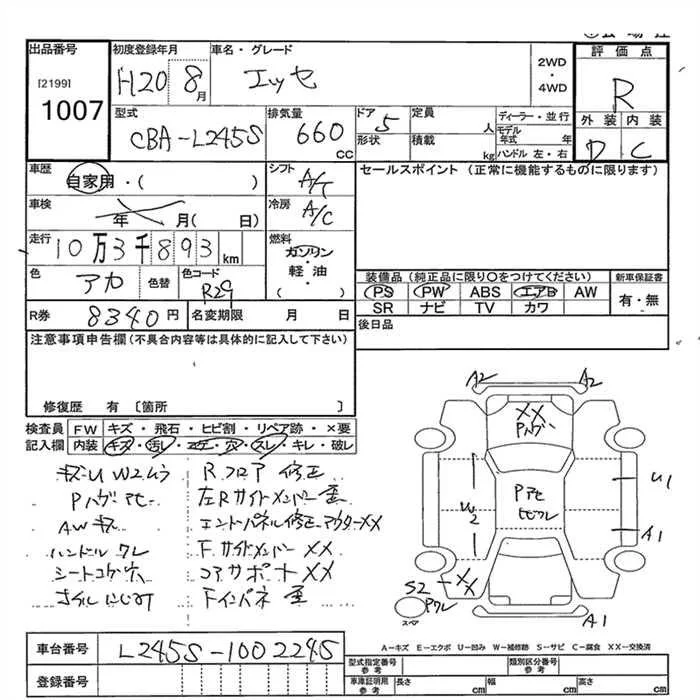 出品番号
[2199]
1007
初度登録年月
H20 8月
車名・グレード
エッセ
2WD
・
4WD
評価点
R
外装 内装
D C
型式
CBA-L245S
排気量
660
CC
ドア
5
形状
定員
人
積載
kg
ディーラー・並行
モデル年式 年
ハンドル 左・右
車歴
自家用・( )
シフト
A/T
車検
年 月( 日)
冷房
A/C
走行
10万3千893km
燃料
ガソリン・
軽油
( )
色
アカ
色替
色コード
R29
R券
8340円
名変期限 月 日
セールスポイント (正常に機能するものに限ります)
装備品(純正品に限り○をつけてください)
PS PW ABS エアB AW
SR ナビ TV カワ
新車保証書
有・無
後日品
注意事項申告欄(不具合内容等は具体的に記入して下さい)
修復歴 有 〔箇所 〕
検査員
記入欄
FW キズ・飛石・ヒビ割・リペア跡・×要
内装 キズ・汚レ・コゲ・穴・スレ・キレ・破レ
キズU W2ムラ
Pハゲ アセ
AWキズ
ハンドル スレ
シートコゲ穴
オイルにじみ
Rフロア 修正
左Rサイドメンバー 歪
エンドパネル修正 アウターXX
F.サイドメンバー XX
コアサポートXX
Fインパネ 歪
A2
A2
XX
Pハゲ
Pアセ
U1
U2
A1
S2
XX
スペア
A1
A-キズ E-エクボ U-凹み W-補修跡 S-サビ C-腐食 XX-交換済
車台番号
L245S-1002245
登録番号
型式指定番号
参考
類別区分番号
参考
車庫証明用
参考
長さ cm
幅 cm
高さ cm